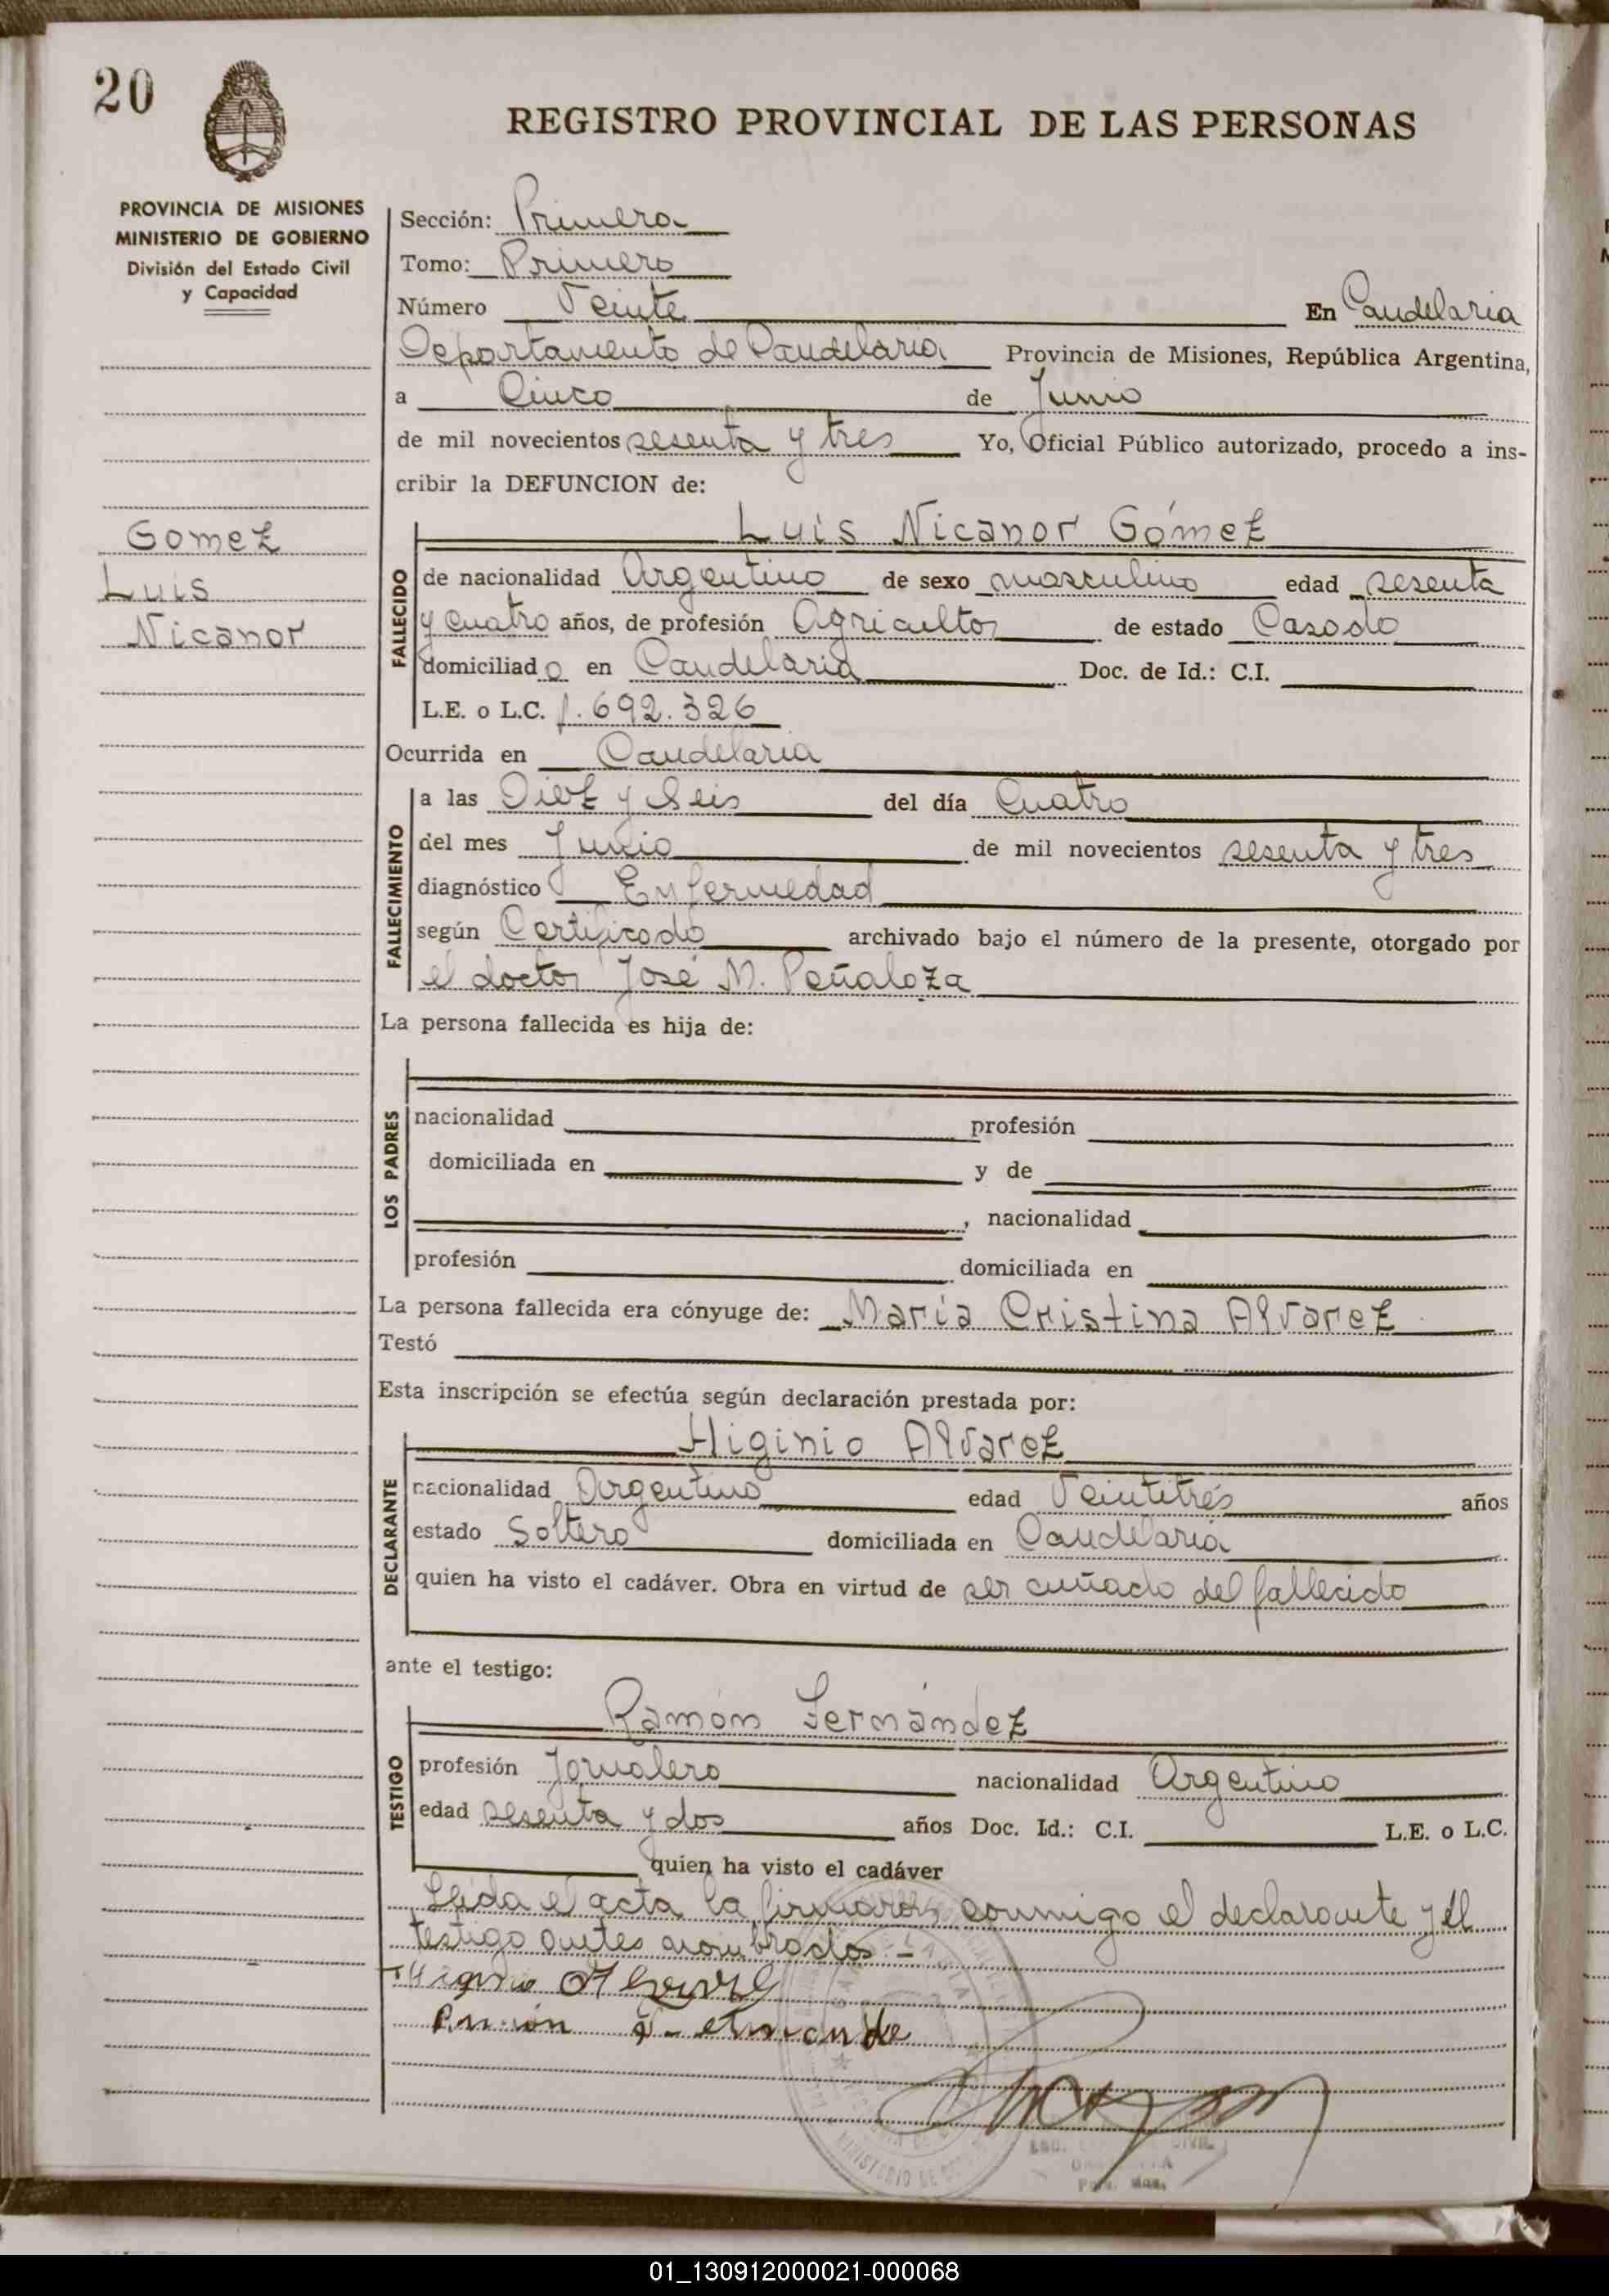 20
REGISTRO PROVINCIAL DE LAS PERSONAS
PROVINCIA DE MISIONES
MINISTERIO DE GOBIERNO
División del Estado Civil
y Capacidad
Gomez
Luis
Nicanor
Sección: Primera
Tomo: Primero
Número Veinte En Candelaria
Departamento de Candelaria Provincia de Misiones, República Argentina,
a Cinco de Junio
de mil novecientos sesenta y tres Yo, Oficial Público autorizado, procedo a ins-
cribir la DEFUNCION de:
Luis Nicanor Gómez
FALLECIDO
de nacionalidad Argentino de sexo masculino edad sesenta
y cuatro años, de profesión Agricultor de estado Casado
domiciliado en Candelaria Doc. de Id.: C.I.
L.E. o L.C. 1.692.326
Ocurrida en Candelaria
FALLECIMIENTO
a las Diez y Seis del día Cuatro
del mes Junio de mil novecientos sesenta y tres
diagnóstico Enfermedad
según Certificado archivado bajo el número de la presente, otorgado por
el doctor José M. Peñaloza
La persona fallecida es hija de:
LOS PADRES
nacionalidad profesión
domiciliada en y de
, nacionalidad
profesión domiciliada en
La persona fallecida era cónyuge de: María Cristina Alvarez
Testó
Esta inscripción se efectúa según declaración prestada por:
Higinio Alvarez
DECLARANTE
nacionalidad Argentino edad Veintitrés años
estado Soltero domiciliada en Candelaria
quien ha visto el cadáver. Obra en virtud de ser cuñado del fallecido
ante el testigo:
Ramón Fernández
TESTIGO
profesión Jornalero nacionalidad Argentino
edad sesenta y dos años Doc. Id.: C.I. L.E. o L.C.
quien ha visto el cadáver
Leida el acta la firmaron conmigo el declarante y el
testigo antes nombrados.-
01_130912000021-000068